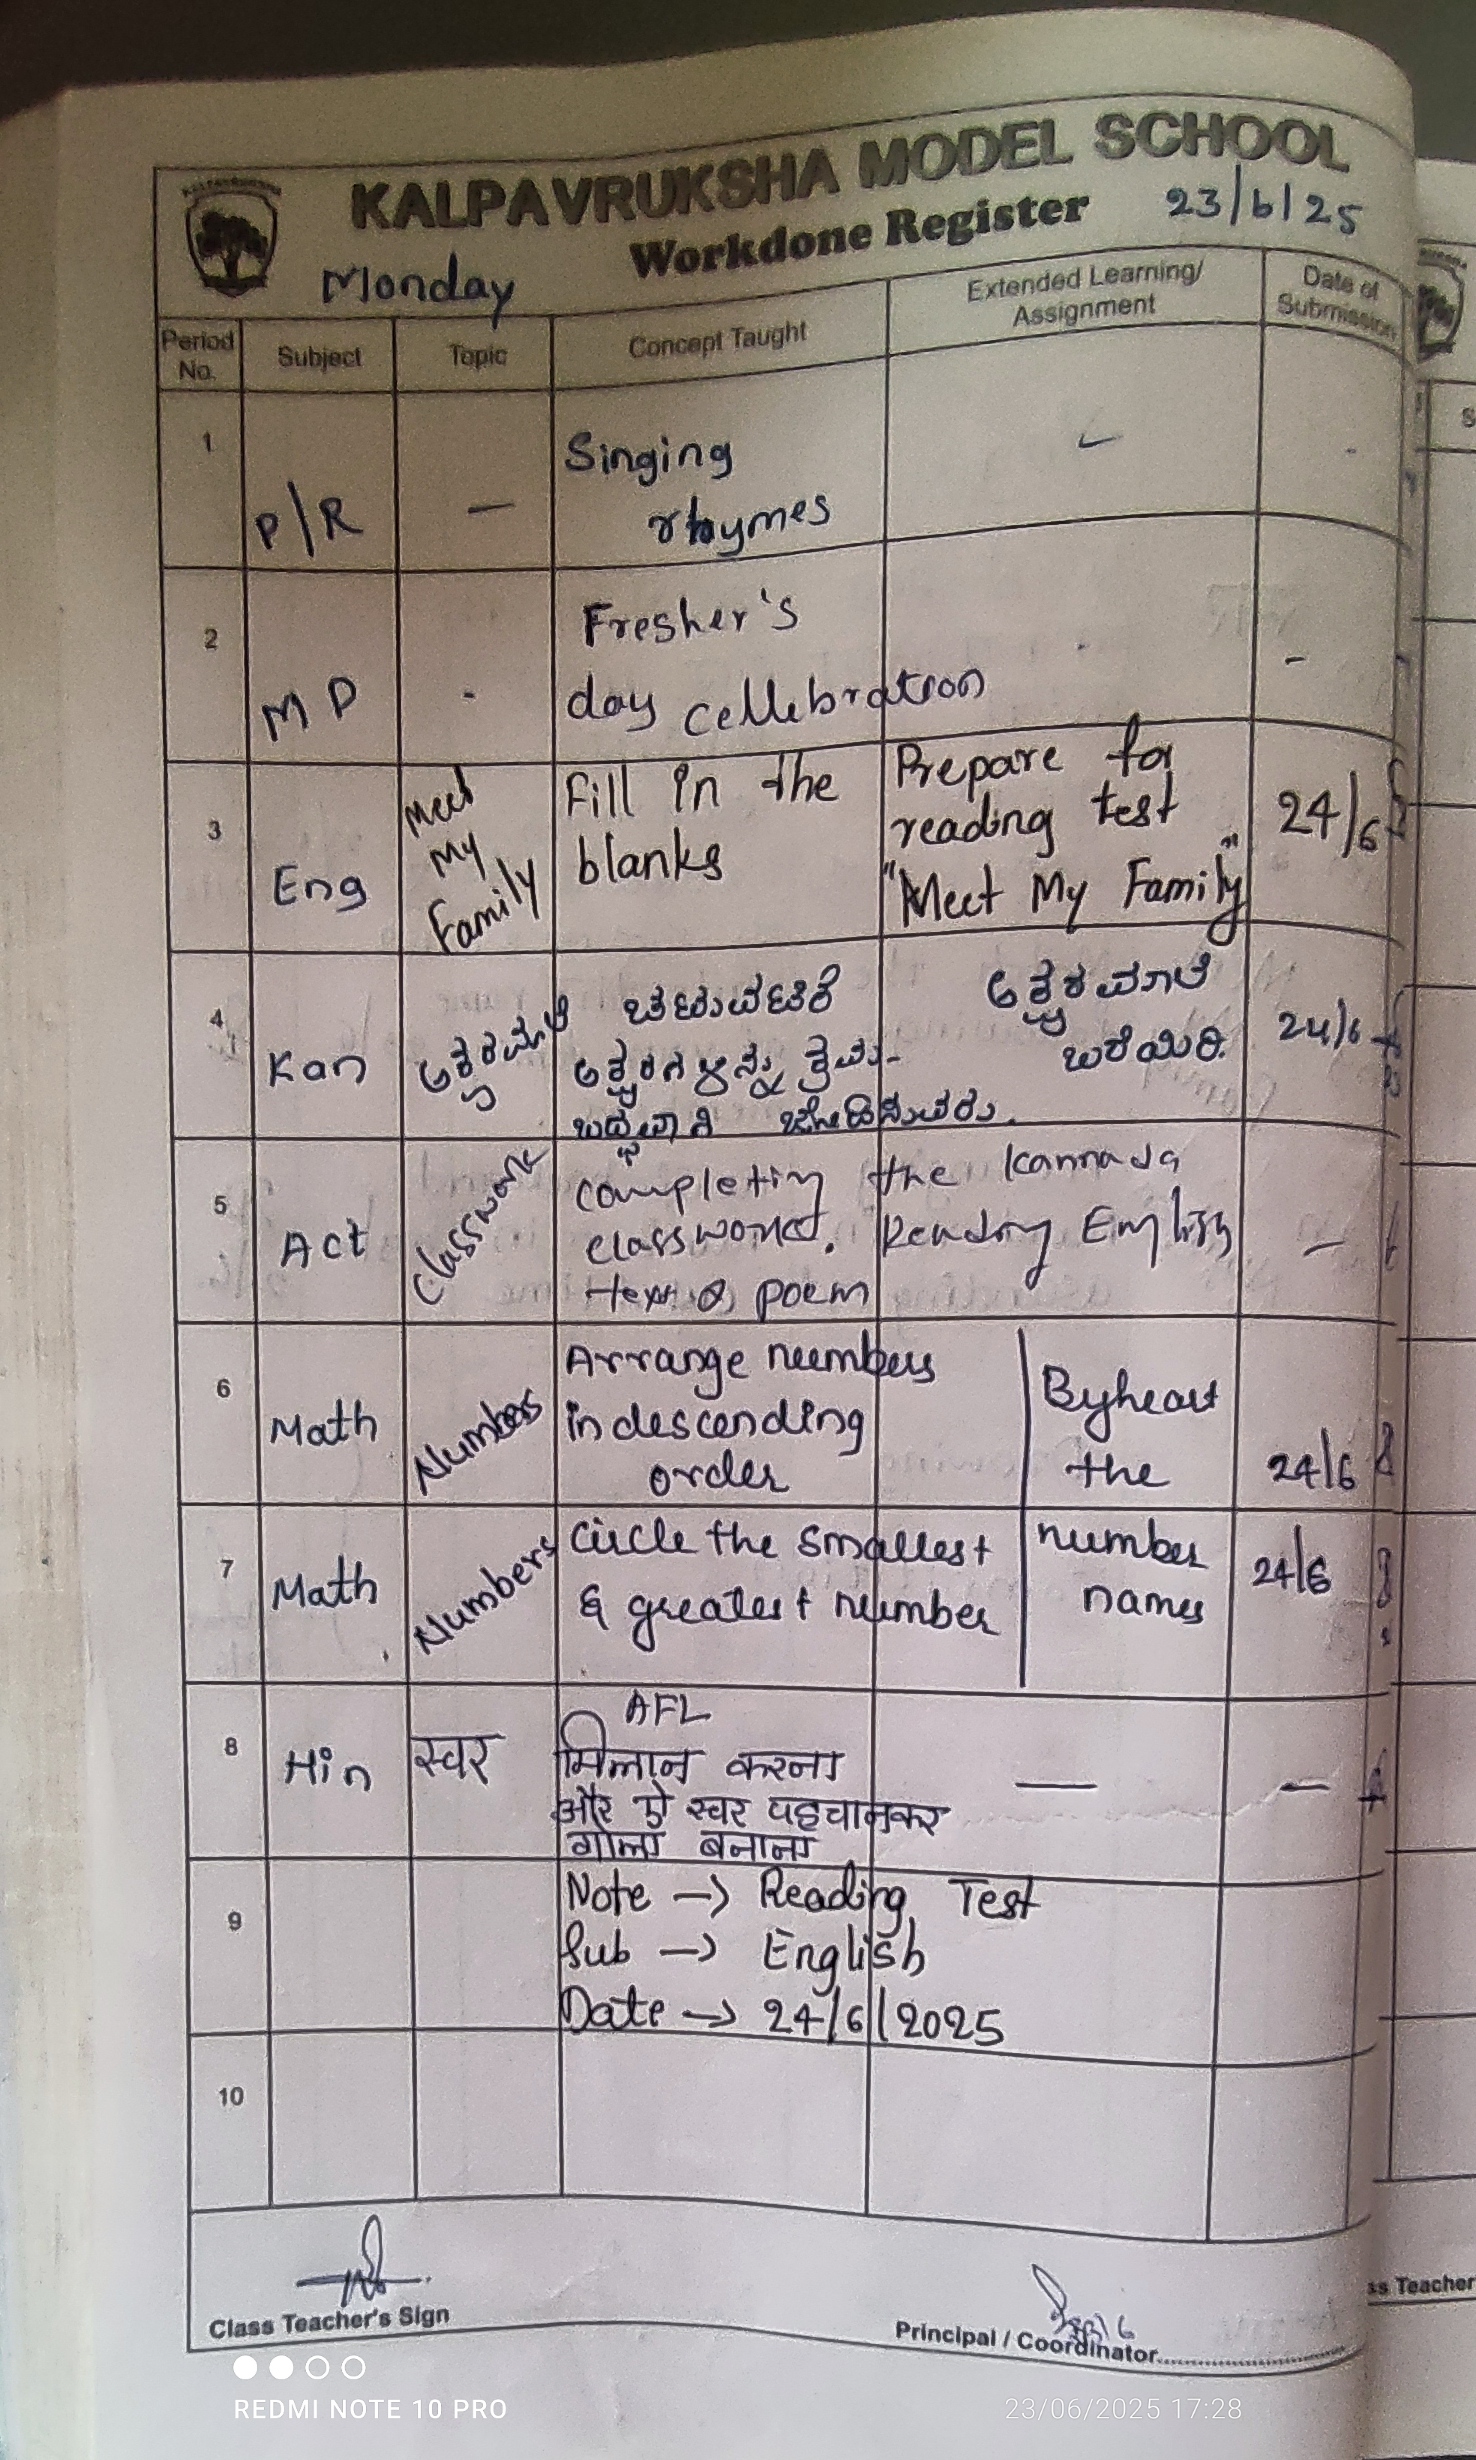 KALPAVRUKSHA
KALPAVRUKSHA MODEL SCHOOL
Workdone Register 23/6/25
Monday
Period No. Subject Topic Concept Taught Extended Learning/ Assignment Date of Submission
1 P/R — Singing
rhymes
2 M P - Fresher's
day cellebration -
3 Eng Meet
My
Family
Fill in the
blanks
Prepare for
reading test
"Meet My Family"
24/6
4 Kan ಅಕ್ಷರಮಾಲೆ
ಚಟುವಟಿಕೆ
ಅಕ್ಷರಗಳನ್ನು ಕ್ರಮ-
ಬದ್ಧವಾಗಿ ಜೋಡಿಸುವರು.
ಅಕ್ಷರಮಾಲೆ
ಬರೆಯಿರಿ.
24/6
5 Act Classwork
completing the Kannada
classwork. Reading English
text & poem
—
6 Math Numbers
Arrange numbers
in descending
order
Byheart
the
24/6
7 Math Numbers
Circle the smallest
& greatest number
number
names
24/6
8 Hin स्वर
AFL
मिलान करना
और ऐ स्वर पहचानकर
गोला बनाना
— —
9 Note → Reading Test
Sub → English
Date → 24/6/2025
10
Class Teacher's Sign
Principal / Coordinator
ss Teacher
REDMI NOTE 10 PRO
23/06/2025 17:28